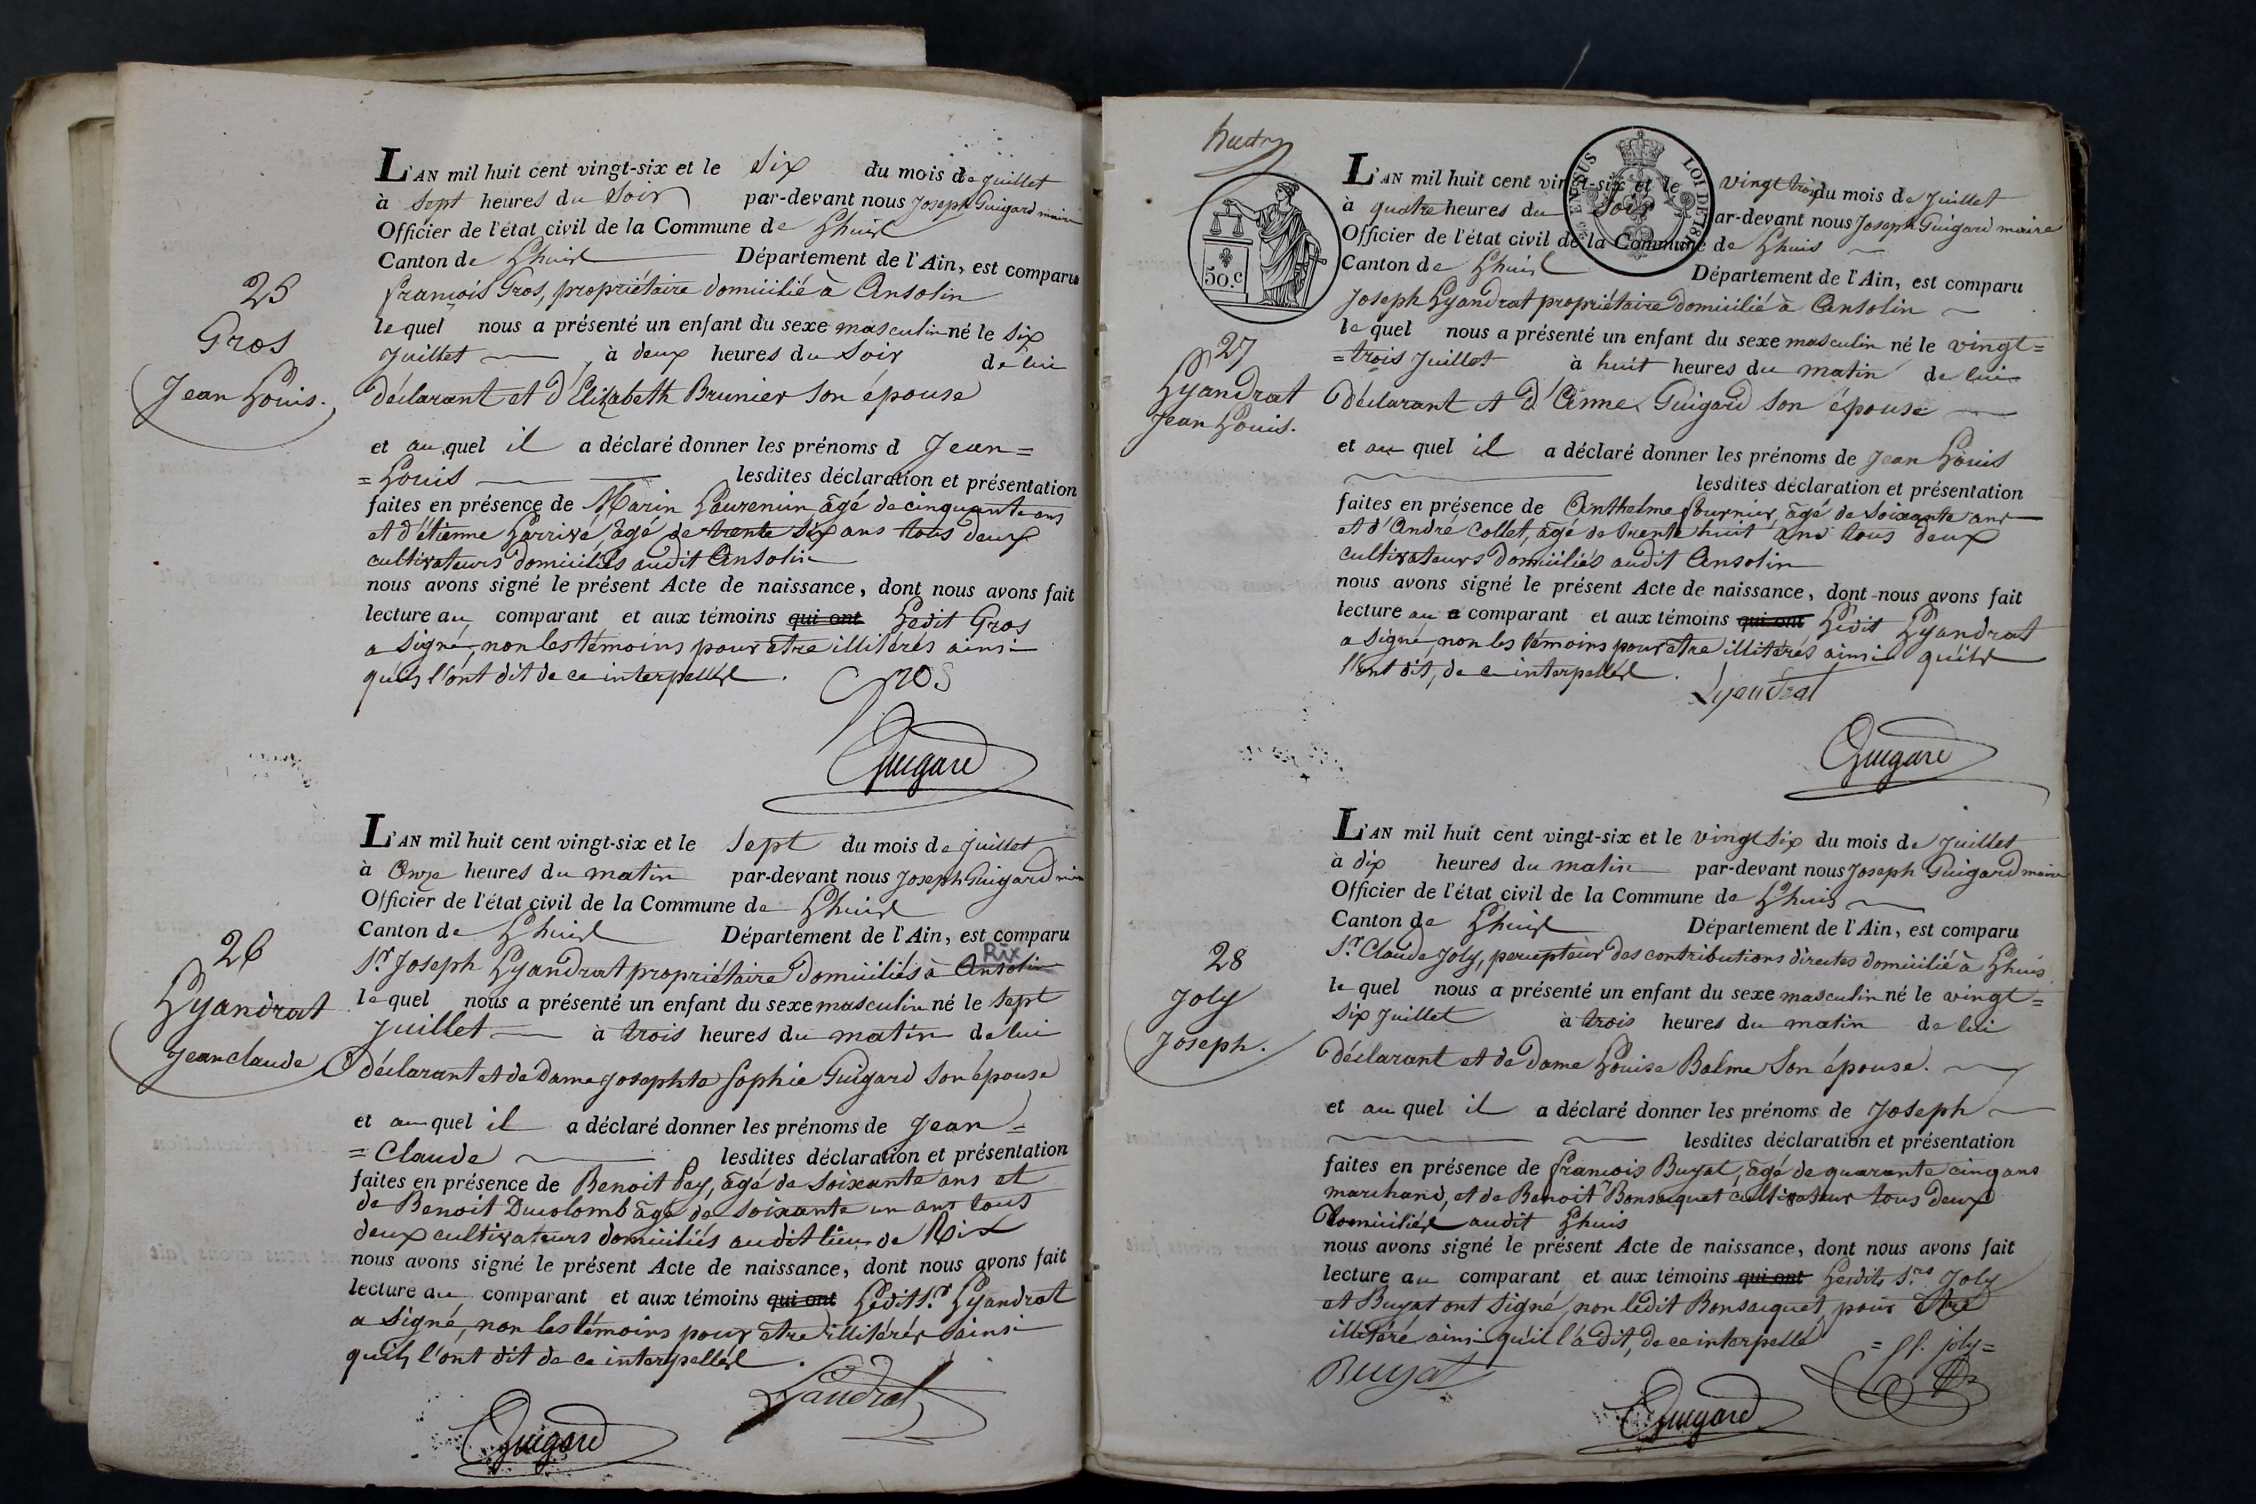 L'AN mil huit cent vingt-six et le Six du mois de Juillet
à Sept heures du Soir par-devant nous Joseph Guigard maire
Officier de l'état civil de la Commune de Lhuis
Canton de Lhuis Département de l'Ain, est comparu
françois Gros, propriétaire domicilié à Ansolin
lequel nous a présenté un enfant du sexe masculin né le Six
Juillet à deux heures du Soir de lui
déclarant et d'Elizabeth Brunier Son épouse
et auquel il a déclaré donner les prénoms d Jean=
=Louis lesdites déclaration et présentation
faites en présence de Marin Laurencin âgé de cinquante ans
et d'étienne Larrivé, âgé de trente Six ans tous deux
cultivateurs domiciliés audit Ansolin
nous avons signé le présent Acte de naissance, dont nous avons fait
lecture au comparant et aux témoins qui ont Ledit Gros
a Signé, non les témoins pour être illitérés ainsi
qu'ils l'ont dit de ce interpellés.
Gros
Guigard
25
Gros
Jean Louis.
L'AN mil huit cent vingt-six et le Sept du mois de Juillet
à Onze heures du matin par-devant nous Joseph Guigard maire
Officier de l'état civil de la Commune de Lhuis
Canton de Lhuis Département de l'Ain, est comparu
Rix
Sr. Joseph Lyandrat propriétaire domiciliés à Ansolin
lequel nous a présenté un enfant du sexe masculin né le Sept
Juillet à trois heures du matin de lui
déclarant et de Dame Josephte Sophie Guigard Son épouse
et auquel il a déclaré donner les prénoms de Jean=
=Claude lesdites déclaration et présentation
faites en présence de Benoit Pey, âgé de Soixante ans et
de Benoit Ducolomb âgé de Soixante un ans tous
deux cultivateurs domiciliés audit lieu de Rix
nous avons signé le présent Acte de naissance, dont nous avons fait
lecture au comparant et aux témoins qui ont Ledit Sr. Lyandrat
a Signé, non les témoins pour être illitérés ainsi
qu'ils l'ont dit de ce interpellés.
Landrat
Guigard
26
Lyandrat
Jean claude
50.c
EN SUS
LOI DE 181
L'AN mil huit cent vingt-six et le vingt trois du mois de Juillet
à quatre heures du Soir par-devant nous Joseph Guigard maire
Officier de l'état civil de la Commune de Lhuis
Canton de Lhuis Département de l'Ain, est comparu
Joseph Lyandrat propriétaire domicilié à Ansolin
lequel nous a présenté un enfant du sexe masculin né le vingt=
=trois Juillet à huit heures du matin de lui
déclarant et d'Anne Guigard Son épouse
et au quel il a déclaré donner les prénoms de Jean Louis
lesdites déclaration et présentation
faites en présence de Anthelme fournier, âgé de Soixante ans
et d'André Collet, âgé de trente huit ans tous deux
cultivateurs domiciliés audit Ansolin
nous avons signé le présent Acte de naissance, dont nous avons fait
lecture au comparant et aux témoins qui ont Ledit Lyandrat
a Signé, non les témoins pour être illitérés ainsi qu'ils
l'ont dit, de ce interpellés.
Lyandrat
Guigard
27
Lyandrat
Jean Louis.
L'AN mil huit cent vingt-six et le vingt Six du mois de Juillet
à dix heures du matin par-devant nous Joseph Guigard maire
Officier de l'état civil de la Commune de Lhuis
Canton de Lhuis Département de l'Ain, est comparu
Sr. Claude Joly, percepteur des contributions directes domicilié à Lhuis
lequel nous a présenté un enfant du sexe masculin né le vingt=
Six Juillet à trois heures du matin de lui
déclarant et de Dame Louise Balme Son épouse.
et au quel il a déclaré donner les prénoms de Joseph
lesdites déclaration et présentation
faites en présence de françois Buyat, âgé de quarante cinq ans
marchand, et de Benoit Bonsacquet cultivateur tous deux
domiciliés audit Lhuis
nous avons signé le présent Acte de naissance, dont nous avons fait
lecture au comparant et aux témoins qui ont Lesdits Srs. Joly
et Buyat ont Signé, non ledit Bonsacquet, pour être
illitéré ainsi qu'il l'a dit, de ce interpellé
Buyat
joly=
Guigard
28
Joly
Joseph.